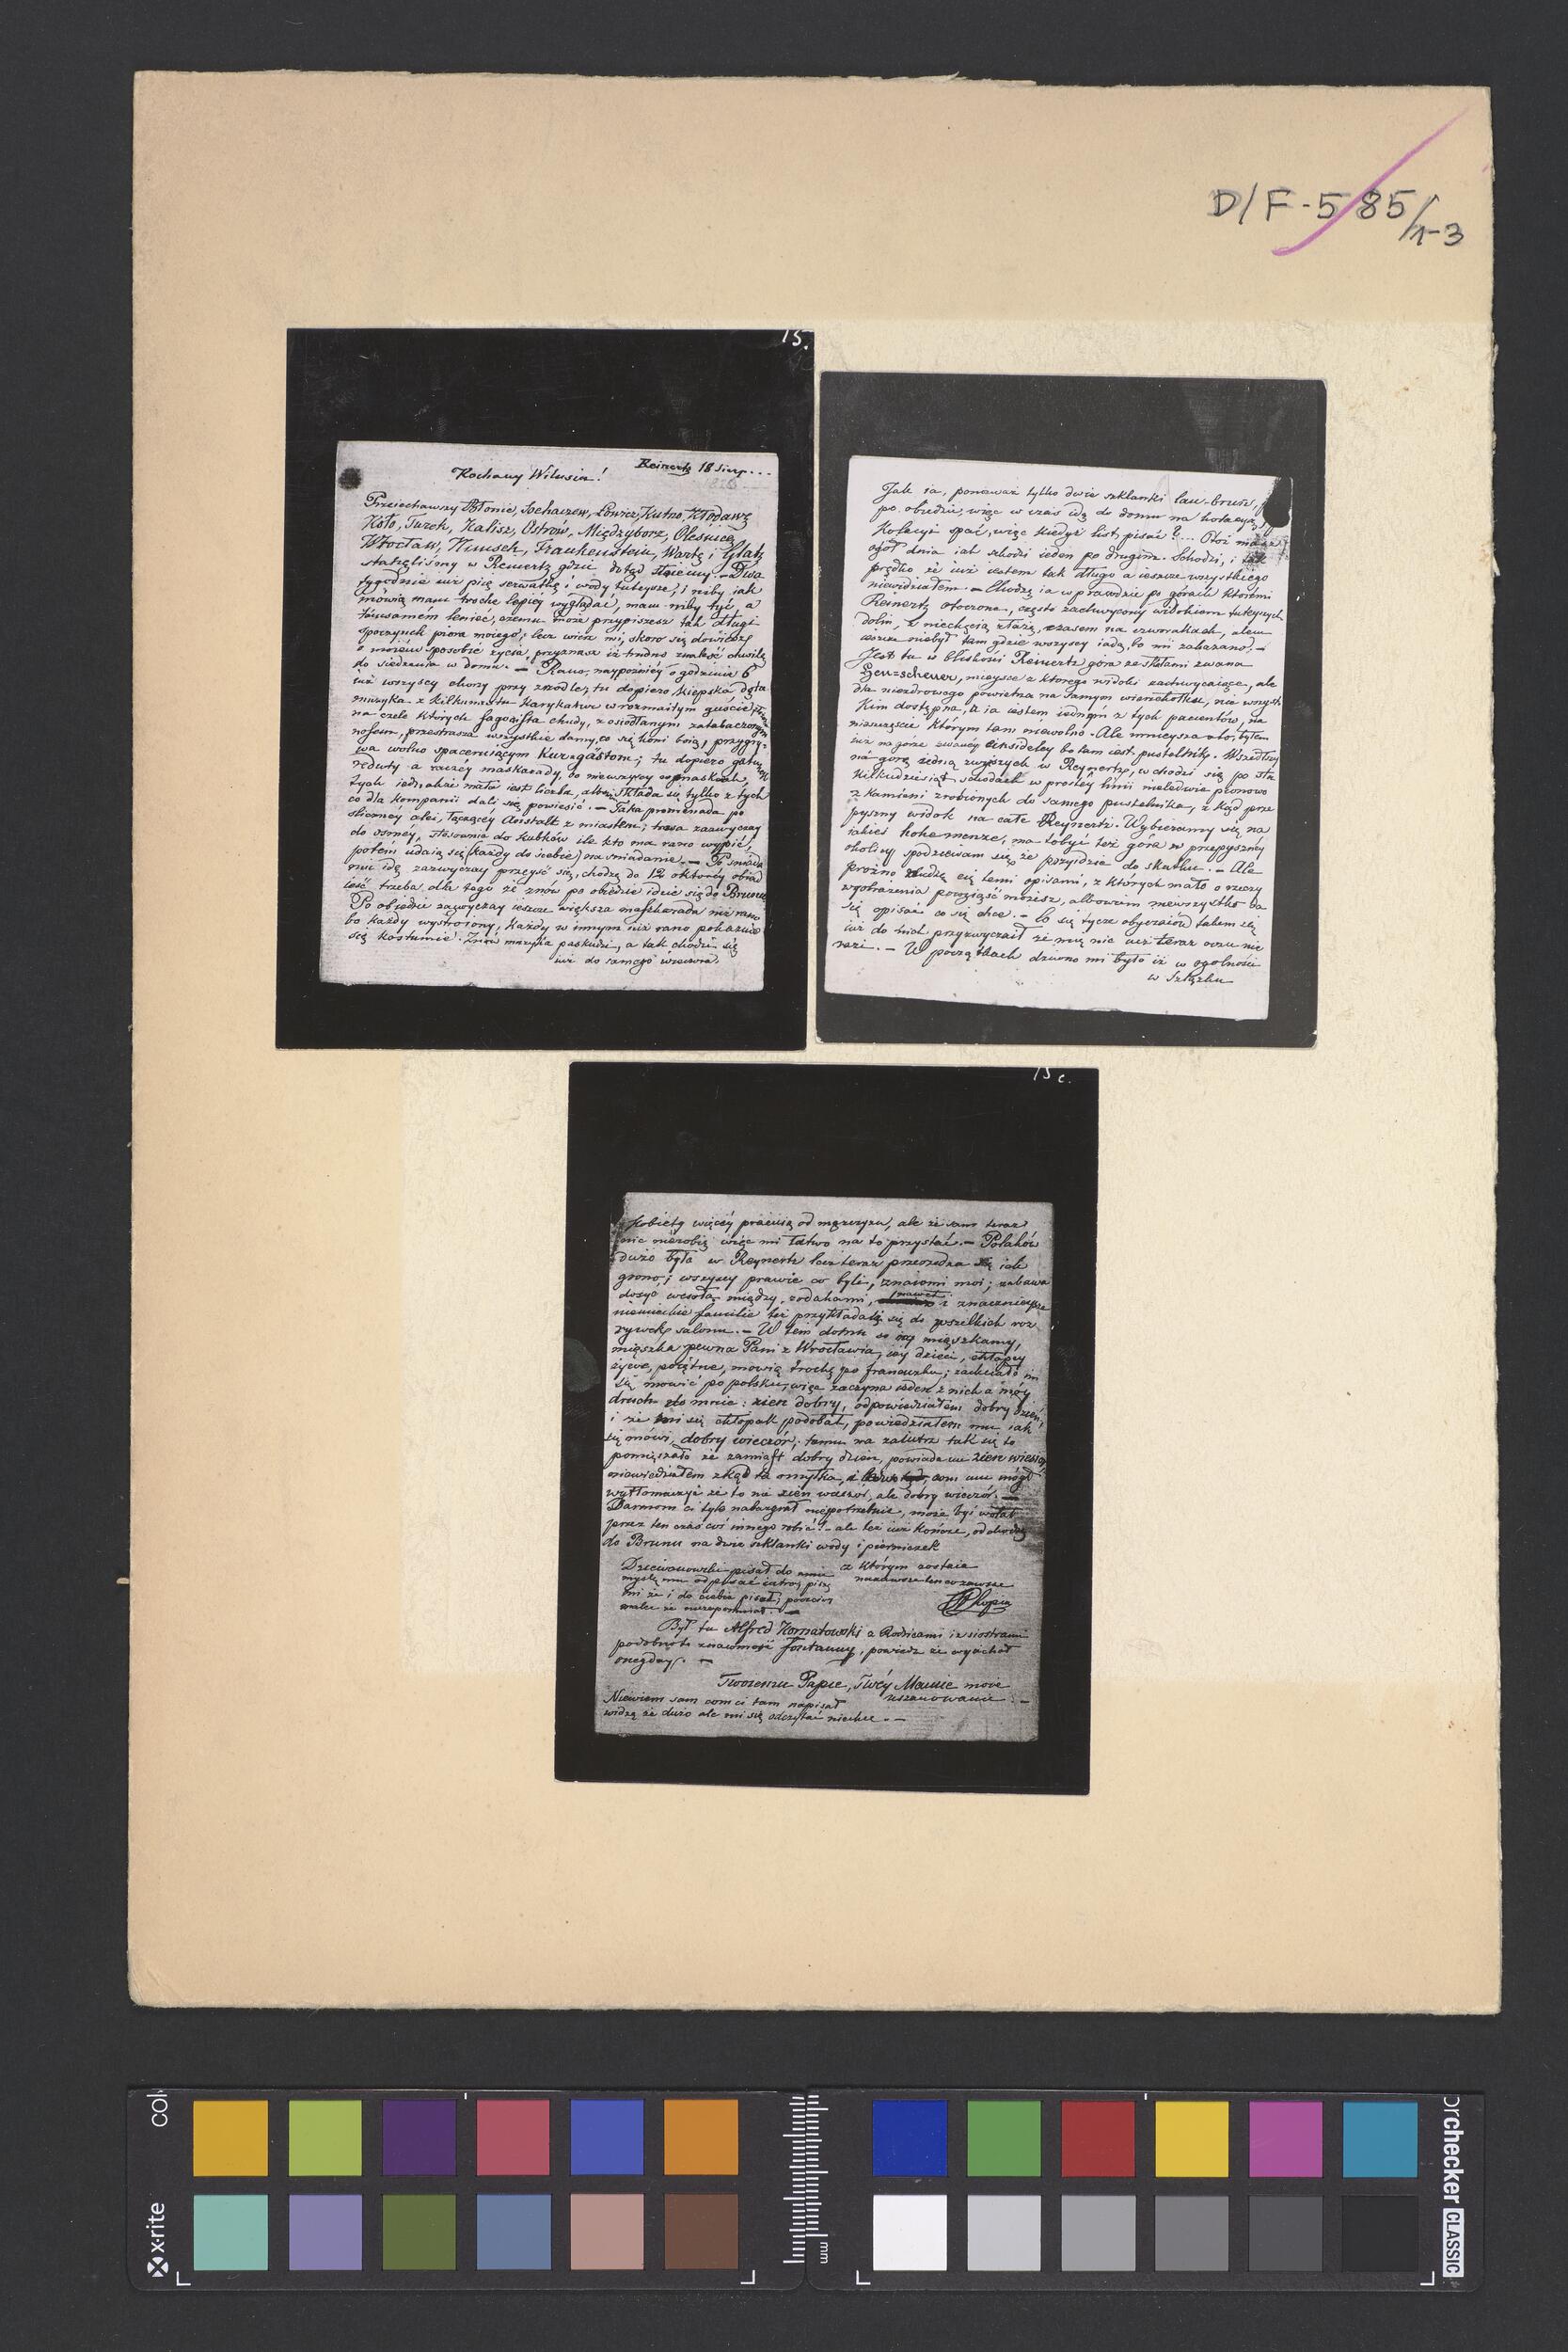 D/F-585/1-3
15.
Reinertz 18 Sierp...
Kochany Wilusiu!
Przeiechawszy Błonie, Sochaczew, Łowicz, Kutno, Kłodawę
Koło, Turek, Kalisz, Ostrów, Międzyborz, Oleśnicę,
Wrocław, Nimsch, Frankenstein, Wartę i Glatz
stanęliśmy w Reinertz gdzie dotąd stoiemy. – Dwa
tygodnie iuż piię serwatkę i wody tuteysze, i niby iak
mówią mam trochę lepiéy wyglądać, mam niby tyć a
témsamém leniec, czemu może przypiszesz tak długi
spoczynek pióra moiego; lecz wierz mi, skoro się dowiesz
o moiém sposobie życia, przyznasz iż trudno znaleść chwilę
do siedzenia w domu. – Rano, naypoźniéy o godzinie 6
iuż wszyscy chorzy przy zrodle; tu dopiero kiepska dęta
muzyka z kilkunastu karykatur w rozmaitym guście
na czele których fagocista chudy, z osiodłanym zatabaczonym
nosem, przestrasza wszystkie damy, co się koni boią, przygry-
wa wolno spaceruiącym Kur-gästom; tu dopiero gatunek
reduty a raczéy maskarady, bo niewszyscy w maskach,
tych iednakże mała iest liczba, albowiem składa się tylko z tych
co dla kompanii dali się powiesić. – Taka promenada po
ślicznéy alei, łączącéy Anstalt z miastem; trwa zazwyczay
do osméy, stosownie do kubków ile kto ma rano wypić,
potém udaią się (każdy do siebie) na śniadanie. – Po śniada
niu idę zazwyczay przeyść się, chodzę do 12 o któréy obiad
ieść trzeba, dla tego że znów po obiedzie idzie się do Brunu.
Po obiedzie zazwyczay ieszcze większa maszkarada niż rano
bo każdy wystroiony, każdy w innym niż rano pokazuie
się kostiumie. Znów muzyka paskudzi, a tak chodzi się
iuż do samego wieczora.
Jak ia, ponieważ tylko dwie szklanki lau-brunn,
po obiedzie, więc w czas idę do domu na kolacyą,
kolacyi spać, więc kiedyż list pisać?... Otoż masz
ogół dnia iak schodzi ieden po drugim. Schodzi, i tak
prędko że iuż iestem tak długo a ieszcze wszystkiego
niewidziałem. – Chodzę ia w prawdzie po górach któremi
Reinertz otoczone, często zachwycony widokiem tuteyszych
dolin, z niechęcią złażę, czasem na czworakach, alem
ieszcze niebył tam gdzie wszyscy iadą, bo mi zakazano. –
Jest tu w bliskości Reinertz góra ze skałami zwana
Heuscheuer, mieysce z ktorego widoki zachwycaiące, ale
dla niezdrowego powietrza na samym wierzchołku, nie wszyst
kim dostępna, a ia iestem iednym z tych pacientów, na
nieszczęście którym tam niewolno. Ale mnieysza o to, byłem
iuż na górze zwanéy Einsideley bo tam iest pustelnik. Wszedłszy
na górę iedną z wyższych w Reynertz, wchodzi się po stu
kilkudziesiąt schodach w prostéy linii maledwie pionowo
z kamieni zrobionych do samego pustelnika, z kąd prze
pyszny widok na całe Reynertz. Wybieramy się na
iakieś hohemenze, ma tobyć też góra w przepyszney
okolicy spodziewam się że przyidzie do skutku. – Ale
prożno nudzę cię temi opisami, z których mało o rzeczy
wyobrażenia powziąść możesz, albowiem niewszystko da
się opisać co się chce. – Co się tycze obyczaiów takem się
iuż do nich przyzwyczaił że mię nic iuż teraz w oczu nie
razi. – W początkach dziwno mi było iż w ogolności
w Szląsku
15 c.
kobiéty więcéy pracuią od męzczyzn, ale że sam teraz
nic nierobię więc mi łatwo na to przystać. – Polaków
dużo było w Reynertz lecz teraz przerzedza się ich
grono, i wszyscy prawie co byli, znaiomi moi; zabawa
dosyć wesoła między rodakami, nawet i znacznieysze
niemieckie familie też przykładały się do wszelkich roz
rywek salonu. – W tém domu co my mięszkamy,
mięszka pewna Pani z Wrocławia, iéy dzieci, chłopcy
żywe, poiętne, mówią trochę po francuzku; zachciało im
się mówić po polsku, więc zaczyna ieden z nich a móy
druch do mnie: zien dobry, odpowiedziałem dobry dzień,
i że mi się chłopak podobał, powiedziałem mu iak
się mówi, dobry wieczór; temu na zaiutrz tak się to
pomięszało że zamiast dobry dzień, powiada mi zien wieczór
niewiedziałem zkąd ta omyłka, i com mu mógł
wytłomaczyć że to nie zien wieczór, ale dobry wieczór. –
Darmom ci tyle nabazgrał niepotrzebnie, może byś wolał
przez ten czas coś innego robić? – ale też iuż kończę, odchodzę
do Brunu na dwie szklanki wody i pierniczek
Dziewanowski pisał do mnie
myślę mu odpisać iutro; pisze
mi że i do ciebie pisał, poczciwy
malec że niezapomniał. –
z którym zostaie
na zawsze ten co zawsze
FF Chopin
Był tu Alfred Kornatowski z Rodzicami i z siostrami
podobnoto znaiomość Fontanny, powiedz że wyiechał
onegday. –
Twoiemu Papie, Twéy Mamie moie
uszanowanie. –
Niewiem sam com ci tam napisał
widzę że dużo ale mi się odczytać niechce. –
x-rite
mm
colorchecker CLASSIC